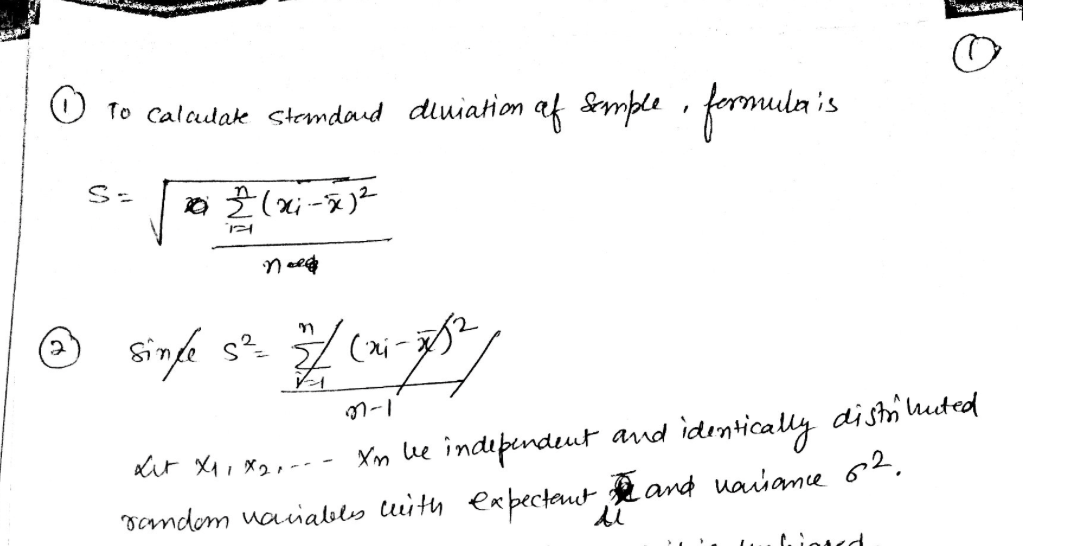 ①
① To Calculate Standard deviation of Sample, formula is
S = √( n∑i=1 (xi - x̄)² / n )
② Since S² = n∑i=1 (xi - x̄)² / n-1
Let X1, X2, --- Xn be independent and identically distributed
random variables with expectent μ and variance σ².